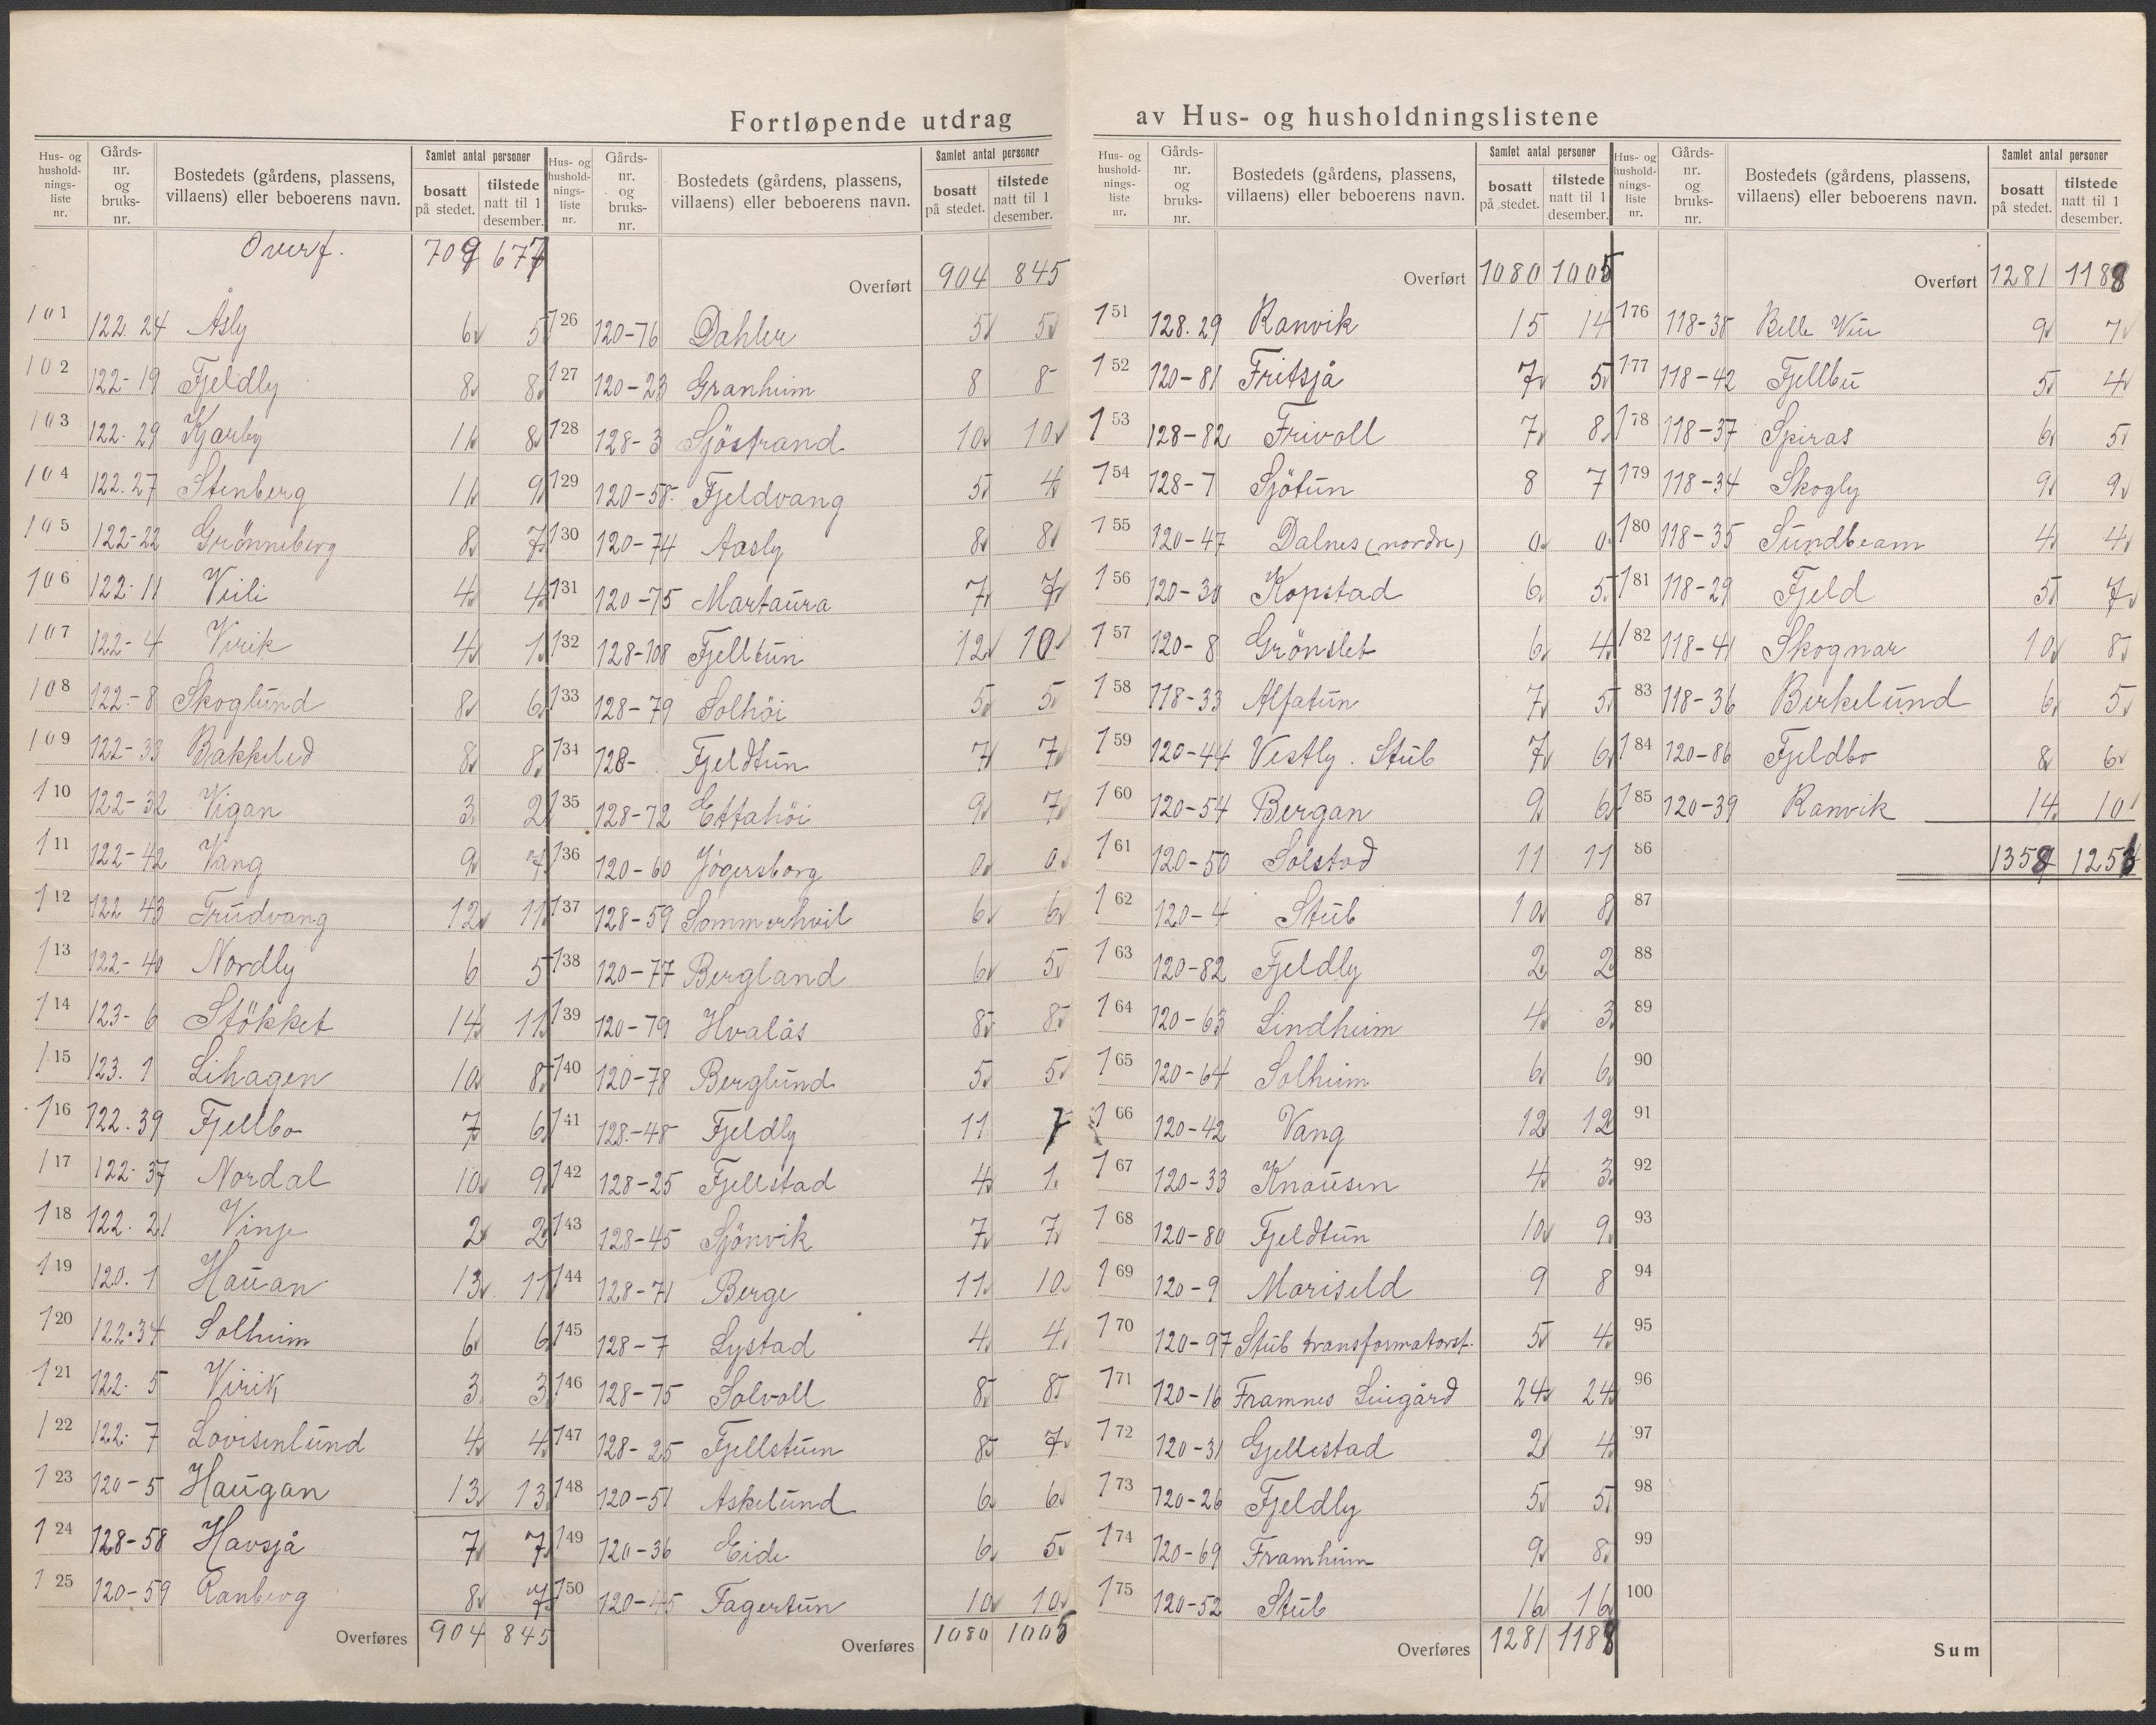 Fortløpende utdrag av Hus- og husholdningslistene
Hus- og husholdningsliste nr.
Gårds-nr. og bruks-nr.
Bostedets (gårdens, plassens, villaens) eller beboerens navn.
Samlet antal personer
bosatt på stedet.
tilstede natt til 1 desember.
Overf. 709 677
101 122. 24 Åsly 6 5
102 122-19 Fjeldly 8 8
103 122. 29 Kjarby 11 8
104 122. 27 Stenberg 11 9
105 122-22 Grönneberg 8 7
106 122. 11 Veili 4 4
107 122-4 Virik 4 1
108 122.-8 Skoglund 8 6
109 122-33 Bakkelid 8 8
110 122-32 Vigan 3 2
111 122-42 Vang 9 7
112 122 43 Trudvang 12 11
113 122-40 Nordly 6 5
114 123-6 Stökket 14 11
115 123. 1 Lihagen 10 8
116 122. 39 Fjellbo 7 6
117 122. 37 Nordal 10 9
118 122. 21 Vinje 2 2
119 120. 1 Hauan 13 11
120 122.34 Solheim 6 6
121 122. 5 Virik 3 3
122 122. 7 Lovisenlund 4 4
123 120-5 Haugan 13 13
124 128-58 Havsjå 7 7
125 120-59 Ranberg 8 7
Overføres 904 845
Hus- og husholdningsliste nr.
Gårds-nr. og bruks-nr.
Bostedets (gårdens, plassens, villaens) eller beboerens navn.
Samlet antal personer
bosatt på stedet.
tilstede natt til 1 desember.
Overført 904 845
126 120-76 Dahler 5 5
127 120-23 Granheim 8 8
128 128-3 Sjöstrand 10 10
129 120-58. Fjeldvang 5 4
130 120-74 Aasly 8 8
131 120-75 Martaura 7 7
132 128-108 Fjelltun 12 10
133 128-79 Solhöi 5 5
134 128- Fjeldtun 7 7
135 128-72 Ettahöi 9 7
136 120-60 Jögersborg 0 0
137 128-59 Sommerhvil 6 6
138 120-77 Bergland 6 5
139 120-79 Hvalås 8 8
140 120-78 Berglund 5 5
141 128.-48 Fjeldly 11 7
142 128-25 Fjellstad 4 1
143 128-45 Sjönvik 7 7
144 128-71 Berge 11 10
145 128-7 Lystad 4 4
146 128-75 Solvoll 8 8
147 128-25 Fjellstuen 8 7
148 120-51 Askelund 6 6
149 120-36 Eide 6 5
150 120-45 Fagertun 10 10
Overføres 1080 1005
Hus- og husholdningsliste nr.
Gårds-nr. og bruks-nr.
Bostedets (gårdens, plassens, villaens) eller beboerens navn.
Samlet antal personer
bosatt på stedet.
tilstede natt til 1 desember.
Overført 1080 1005
151 128.29 Ranvik 15 14
152 120-81 Fritsjå 7 5
153 128-82 Frivoll 7 8
154 128-7 Sjötun 8 7
155 120-47 Dalnes (nordre) 0 0
156 120-30 Kopstad 6 5
157 120-8 Grönslet 6 4
158 118-33 Alfatun 7 5
159 120-44 Vestly. Stub 7 6
160 120-54 Bergan 9 6
161 120-50 Solstad 11 11
162 120-4 Stub 10 8
163 120-82 Fjeldly 2 2
164 120-63 Lindheim 4 3
165 120-64 Solheim 6 6
166 120-42 Vang 12 12
167 120-33 Knausen 4 3
168 120-80 Fjeldtun 10 9
169 120-9 Mariseld 9 8
170 120-97 Stub transformatorst. 5 4
171 120-16 Framnes Leiegård 24 24
172 120-31 Gjellestad 2 4
173 120-26 Fjeldly 5 5
174 120-69 Framheim 9 8
175 120-52 Stub 16 16
Overføres 1281 1188
Hus- og husholdningsliste nr.
Gårds-nr. og bruks-nr.
Bostedets (gårdens, plassens, villaens) eller beboerens navn.
Samlet antal personer
bosatt på stedet.
tilstede natt til 1 desember.
Overført 1281 1188
176 118-38 Belle Viu 9 7
177 118-42 Fjellbu 5 4
178 118-37 Spiras 6 5
179 118-34 Skogly 9 9
180 118-35 Sundbeam 4 4
181 118-29 Fjeld 5 7
182 118-41 Skognar 10 8
83 118-36 Birkelund 6 5
184 120-86 Fjeldbo 8 6
185 120-39 Ranvik 14 10
86 1358 1253
87
88
89
90
91
92
93
94
95
96
97
98
99
100
Sum